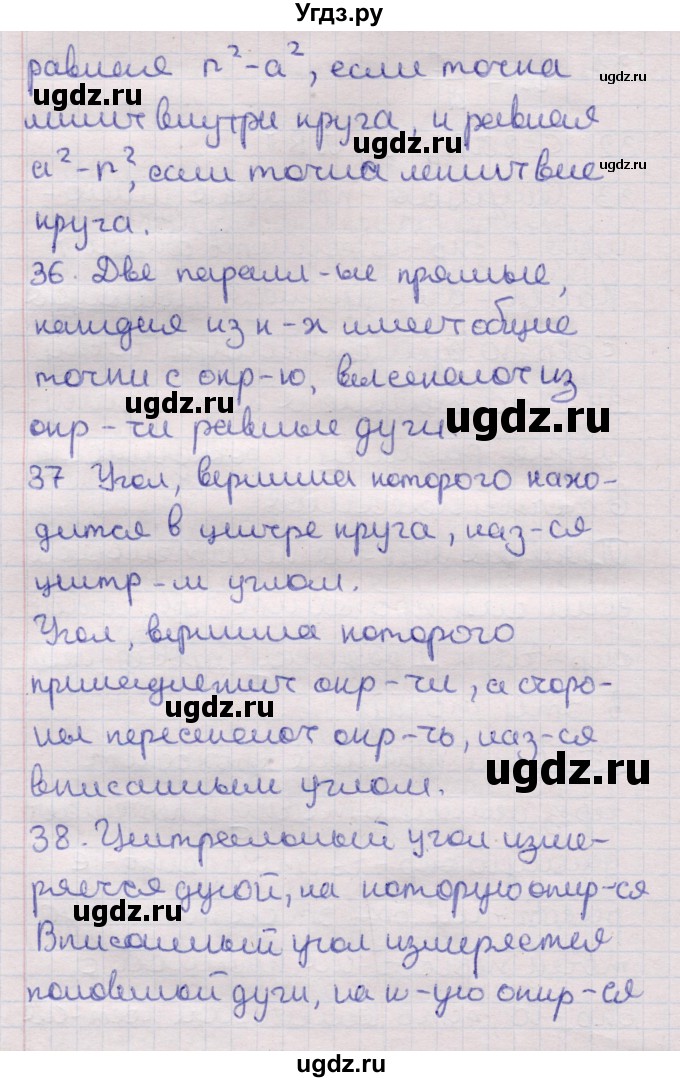 Угдз.ру
равная r²-a², если точка
ugdz.ru
ugdz.ru
лежит внутри круга, и равная
ugdz.ru
a²-r², если точка лежит вне
ugdz.ru
круга.
36. Две паралл-ые прямые,
каждая из к-х имеет общие
точки с окр-ю, высекают из
ugdz.ru
окр-ти равные дуги.
ugdz.ru
37 Угол, вершина которого нахо-
дится в центре круга, наз-ся
центр-м углом.
Угол, вершина которого
принадлежит окр-ти, а сторо-
ugdz.ru
ны пересекают окр-ть, наз-ся
ugdz.ru
вписанным углом.
38. Центральный угол изме-
ряется дугой, на которую опир-ся
ugdz.ru
Вписанный угол измеряется
половиной дуги, на к-ую опир-ся
ugdz.ru